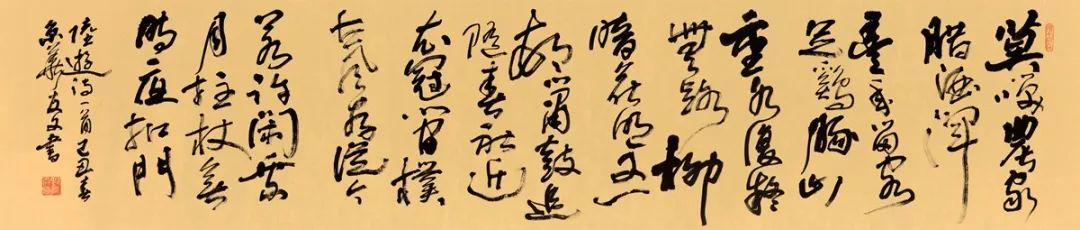 莫咲農家
腊酒渾
豐年留客
足鷄豚山
重水復疑
無路柳
暗花明又一
邨簫鼓追
隨春社近
衣冠簡樸
古風存從今
若許閑乘
月拄杖無
時夜扣門
陸遊詩一首己丑春
京華友文書